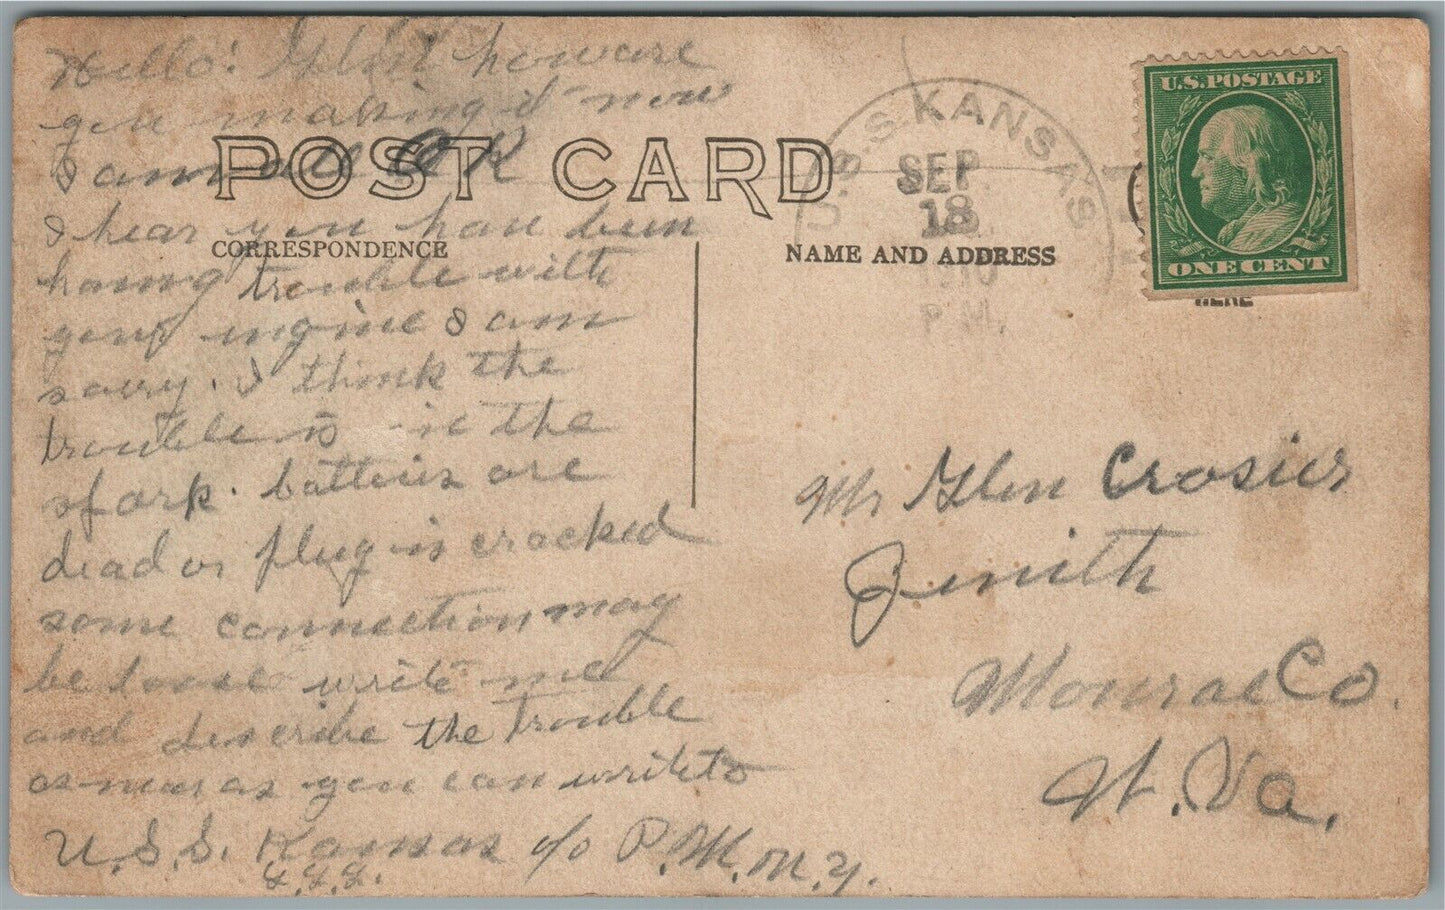 Hello! Glen how are
you making it now
I am all O K
I hear you have been
having trouble with
your engine I am
sorry. I think the
trouble is in the
spark. batteries are
dead or plug is cracked
some connection may
be loose write me
and describe the trouble
as near as you can write to
U.S.S. Kansas c/o P.M. N.Y.
POST CARD
CORRESPONDENCE
NAME AND ADDRESS
U.S.S KANSAS
SEP
18
1910
P.M.
U.S. POSTAGE
ONE CENT
HERE
Mr Glen Crosier
Zenith
Monroe Co.
W. Va.